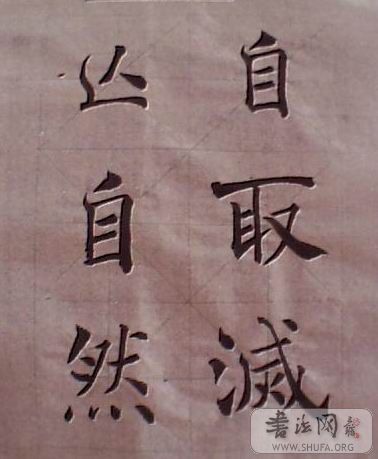 自取滅
亾自然
書法网
WWW.SHUFA.ORG